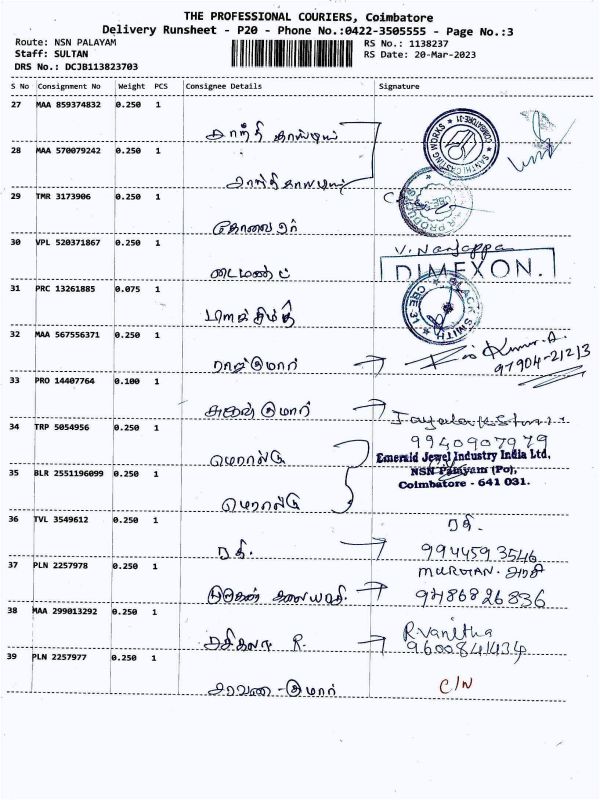 THE PROFESSIONAL COURIERS, Coimbatore
Delivery Runsheet - P20 - Phone No.:0422-3505555 - Page No.:3
Route: NSN PALAYAM
RS No.: 1138237
Staff: SULTAN
RS Date: 20-Mar-2023
DRS No.: DCJB113823703
S No Consignment No Weight PCS Consignee Details Signature
27 MAA 859374832 0.250 1
SANTHI CASTING WORKS COIMBATORE-31
28 MAA 570079242 0.250 1
29 TMR 3173906 0.250 1
கோவை ஏர்
30 VPL 520371867 0.250 1
V. Nanjappa
டைமண்ட் DIMEXON.
31 PRC 13261885 0.075 1
BLACK SMITH CBE-31
32 MAA 567556371 0.250 1
ராஜ்குமார் → Kumar. A.
97904-21213
33 PRO 14407764 0.100 1
குமார் →
34 TRP 5054956 0.250 1
9940907979
மெரால்டு Emerald Jewel Industry India Ltd,
NSN Palayam (Po),
35 BLR 2551196099 0.250 1
Coimbatore - 641 031.
மெரால்டு
36 TVL 3549612 0.250 1
ரதி.
ரதி. → 9944593546
37 PLN 2257978 0.250 1
MURUGAN.
முருகன் → 9786826836
38 MAA 299013292 0.250 1
R. Vanitha
R. → 9600841434
39 PLN 2257977 0.250 1
சரவண - குமார் C/N